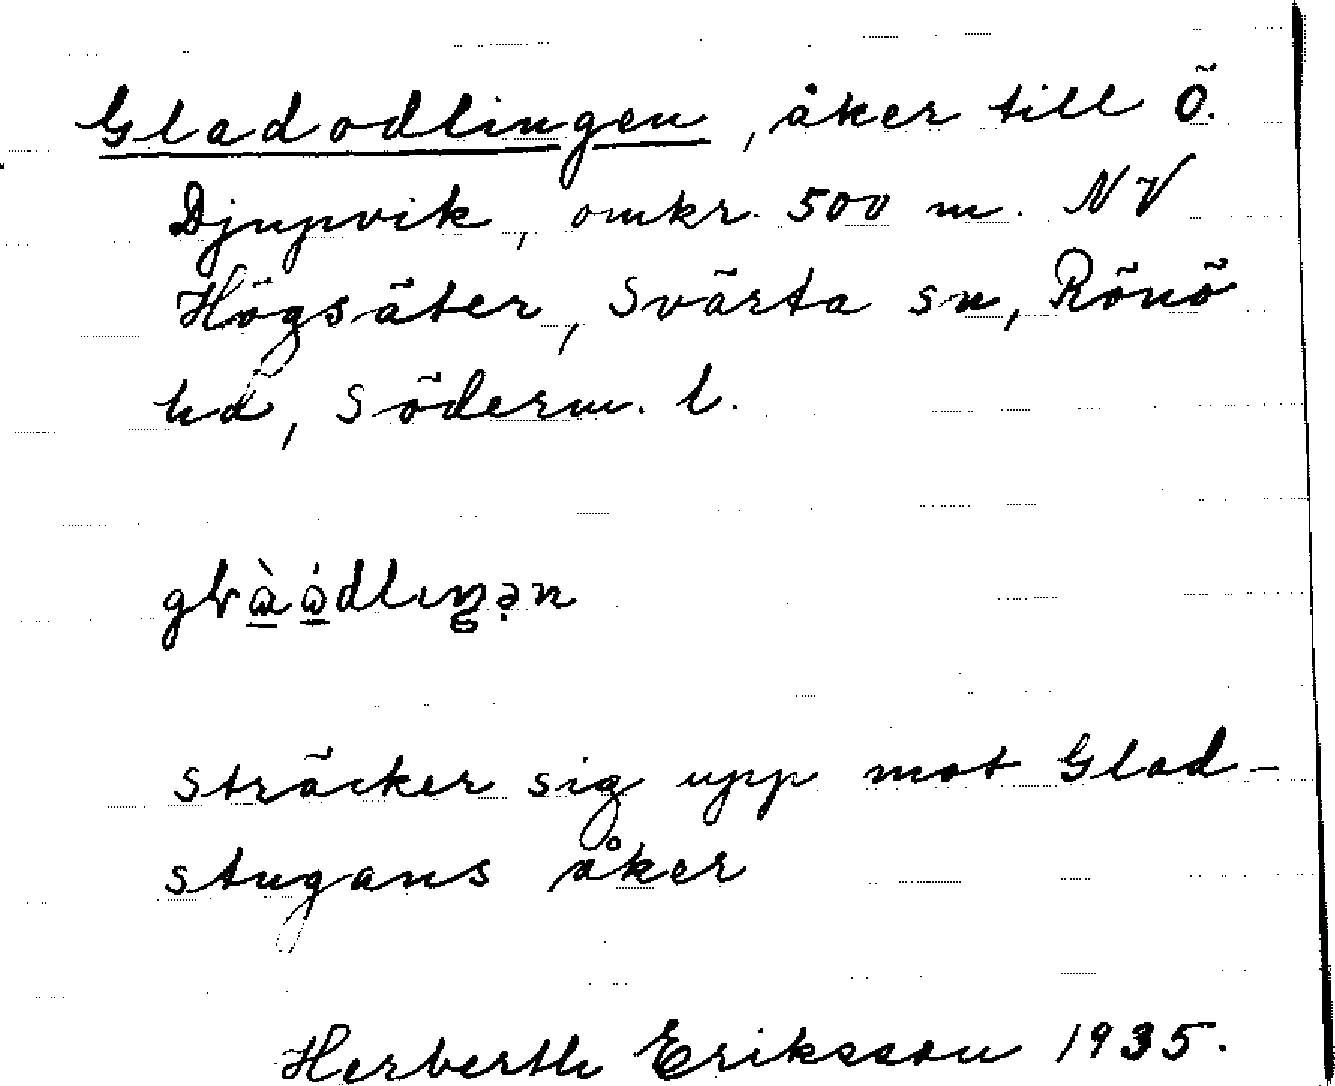 Gladodlingen, åker till Ö.
Djupvik, omkr. 500 m. NV
Högsäter, Svärta sn, Rönö
hd, Söderm. l.
Sträcker sig upp mot Glad-
stugans åker
Herberth Eriksson 1935.